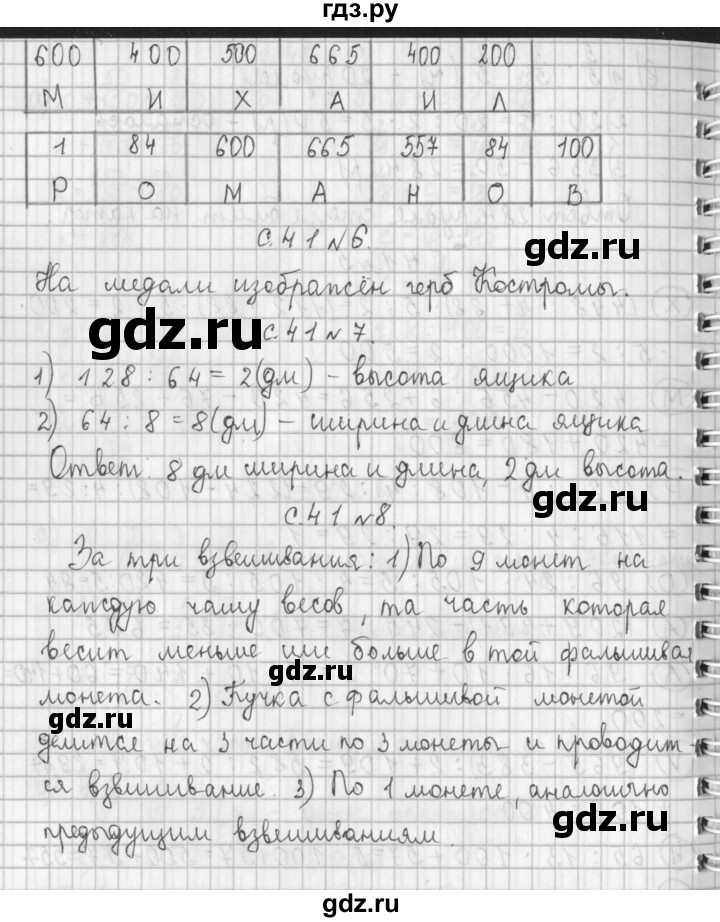 гдз.ру
600 400 500 665 400 200
М И Х А И Л
1 84 600 665 557 84 100
Р О М А Н О В
с.41 №6.
gdz.ru
На медали изображён герб Костромы.
gdz.ru
с.41 №7.
1) 128 : 64 = 2(дм) – высота ящика
2) 64 : 8 = 8(дм) – ширина и длина ящика
Ответ: 8 дм ширина и длина, 2 дм высота.
gdz.ru
с.41 №8.
За три взвешивания: 1) По 9 монет на
каждую чашу весов, та часть которая
весит меньше или больше в той фальшивая
монета. 2) Кучка с фальшивой монетой
gdz.ru
делится на 3 части по 3 монеты и проводит-
ся взвешивание. 3) По 1 монете, аналогично
gdz.ru
предыдущим взвешиваниям.
gdz.ru